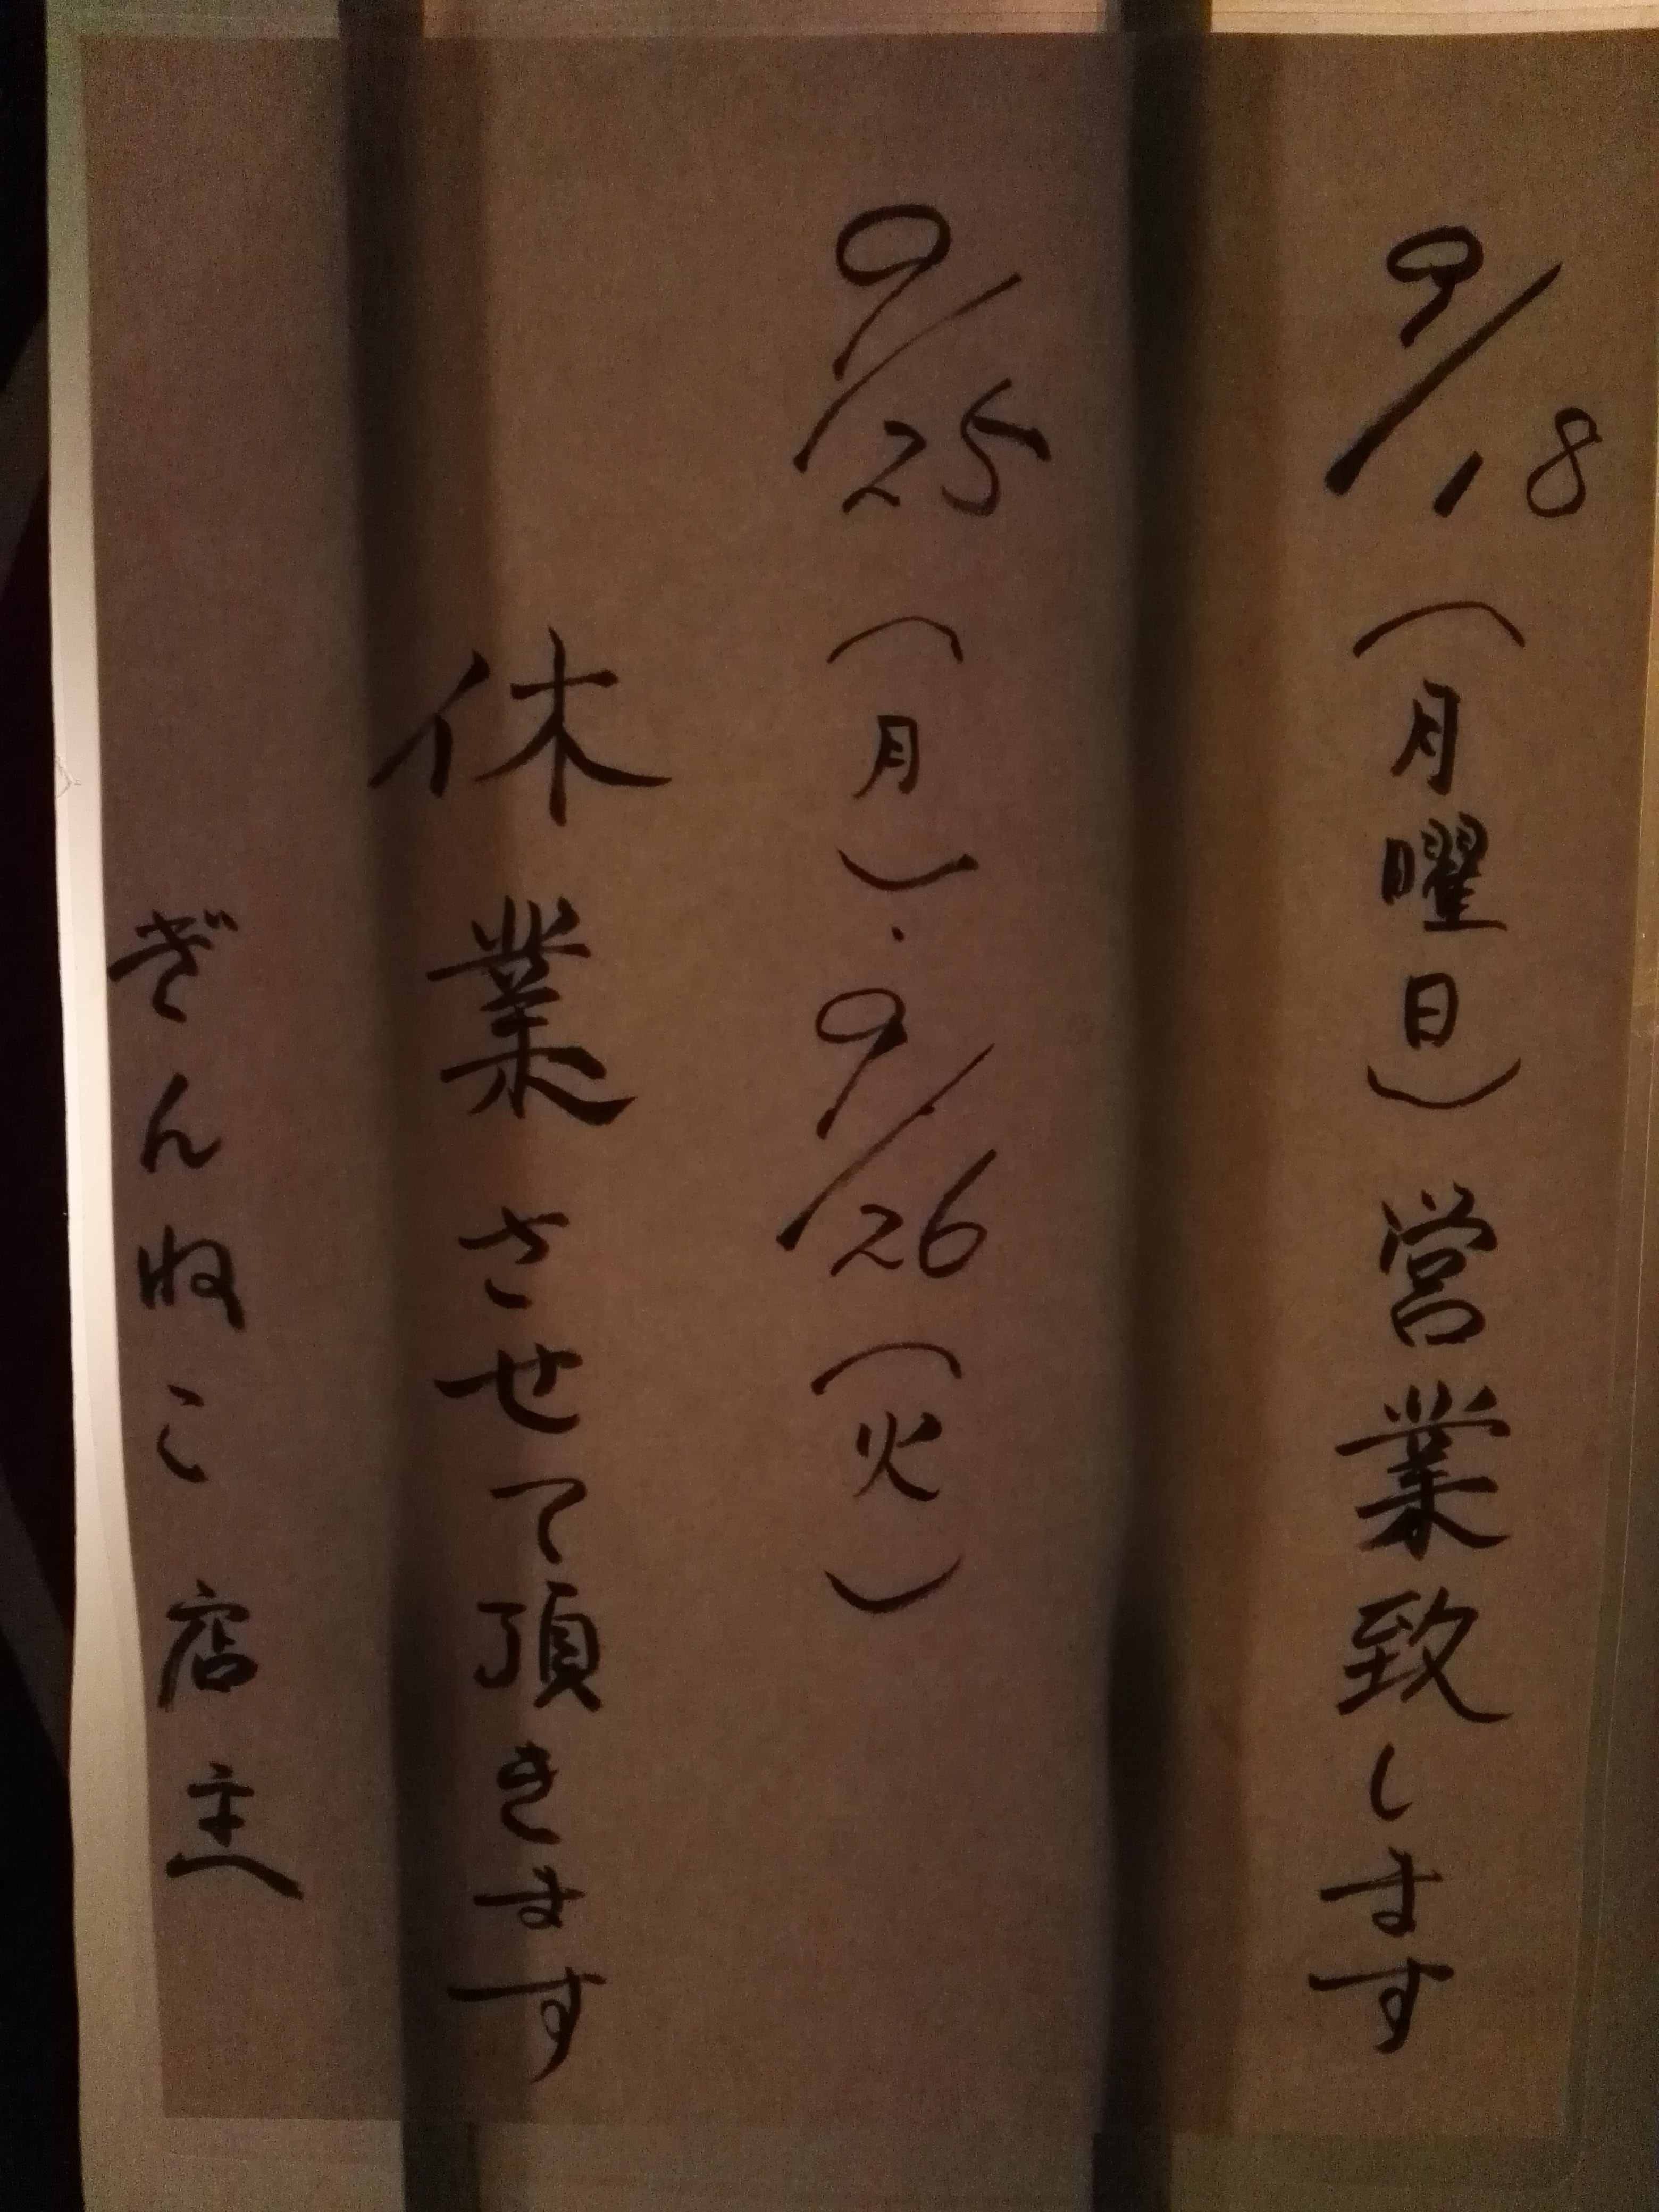 9/18(月曜日)営業致します
9/25(月)・9/26(火)
休業させて頂きます
ぎんねこ 店主